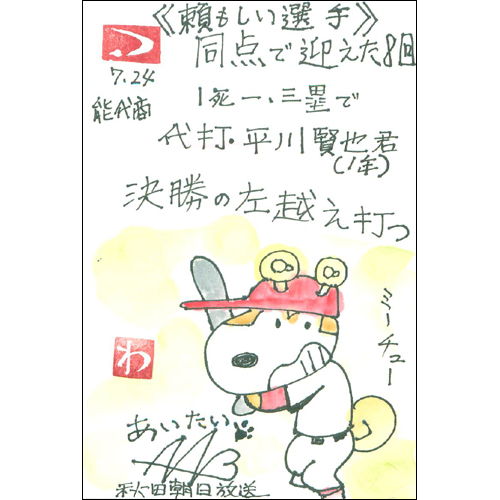 《頼もしい選手》
同点で迎えた8回
7.24
能代商
1死一、三塁で
代打・平川賢也君
(1年)
決勝の左越え打つ
ミーチュー
わ
あいたい
秋田朝日放送